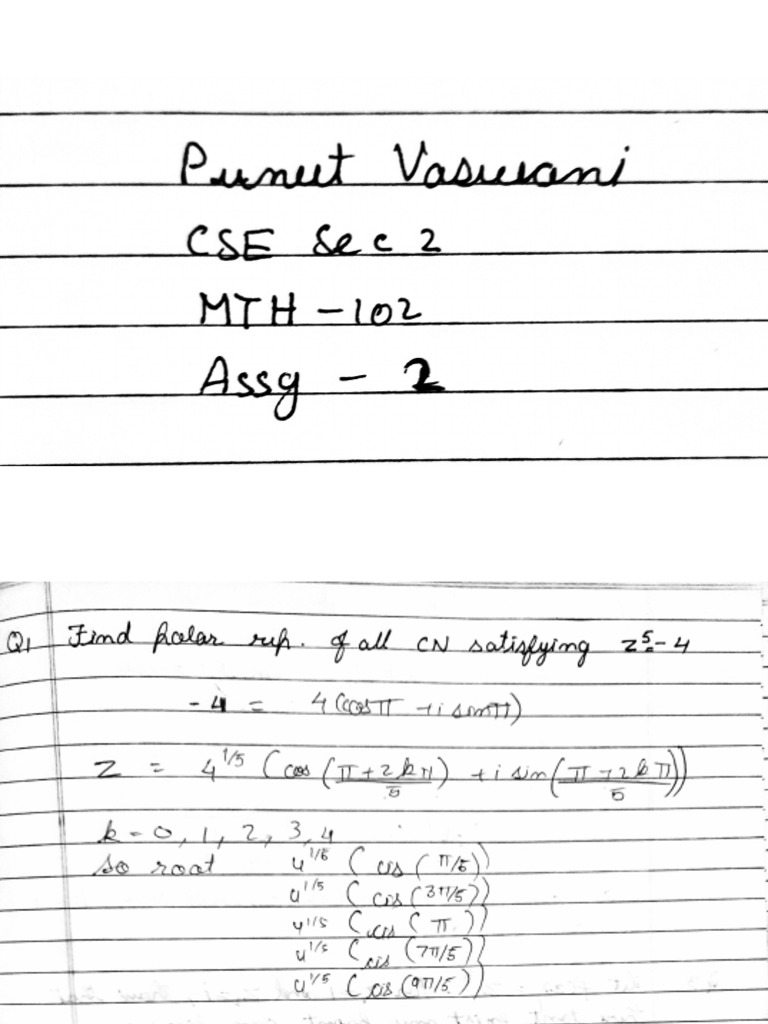 Puneet Vaswani
CSE Sec 2
MTH - 102
Assg - 2
Q1 Find polar rep. of all CN satisfying z^5 = -4
-4 = 4(cosπ + i sinπ)
z = 4^1/5 (cos (π+2kπ)/5 + i sin (π+2kπ)/5)
k = 0, 1, 2, 3, 4
so root 4^1/5 (cis (π/5))
4^1/5 (cis (3π/5))
4^1/5 (cis (π))
4^1/5 (cis (7π/5))
4^1/5 (cis (9π/5))